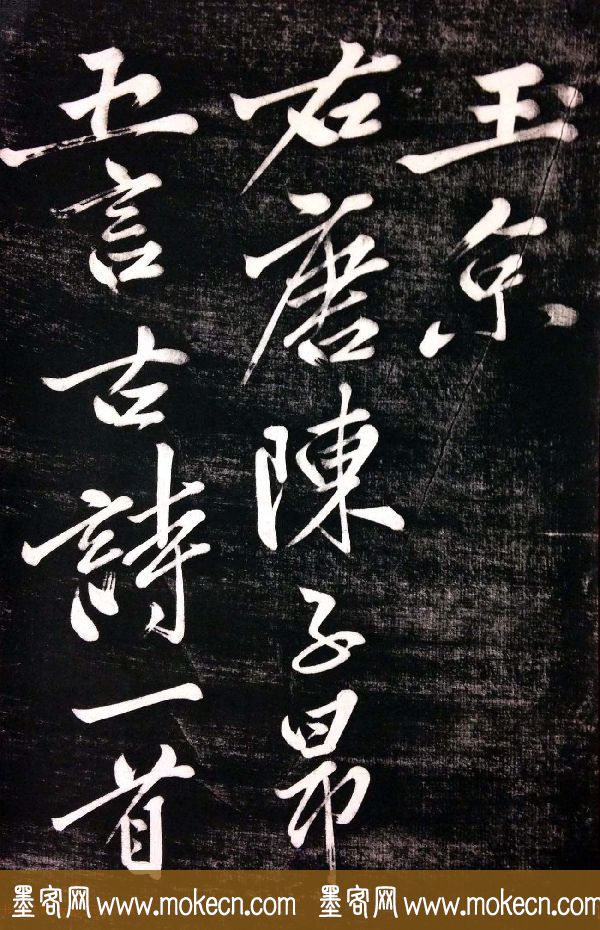 玉京
右唐陳子昂
五言古詩一首
墨客网 www.mokecn.com 墨客网 www.mokecn.com